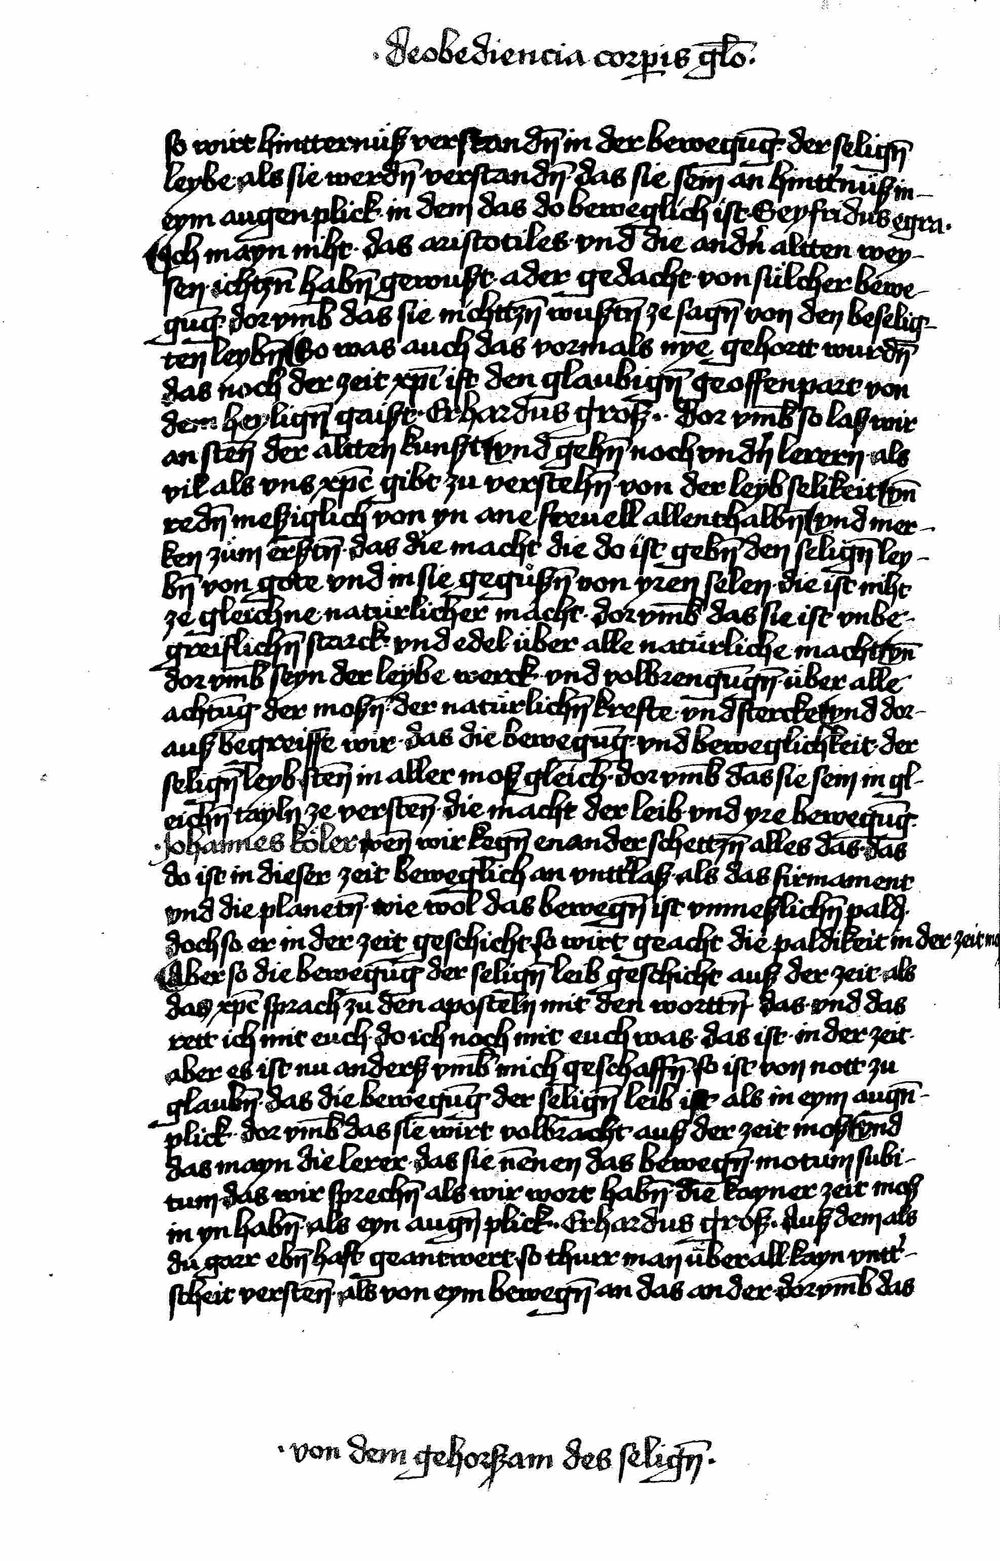 · de obediencia corp̄is gl̄o ·
so wirt hintternüß verstandn̄ in der bewegūg · der selign̄
leybe · als sie werdn̄ verstandn̄ · das sie sein an hintt'nüß in-
eym augenplick · in dem das do beweglich ist · Seyfridus egra ·
Ich mayn niht · das aristotiles · vnd die andn̄ altten wey-
sen · ichtzn̄ habn̄ gewust · ader gedacht · von sülcher bewe-
gūg · dor vmb das sie nichttzn̄ wustn̄ ze sagn̄ von den beselig-
ten leybn̄ So was auch das vormals nye gehortt wurdn̄
das noch der zeit xp̄i ist den glaubign̄ geoffenpart von
dem heylign̄ gaist · Erhardus groß · · dor vmb so laß wir
an sten̄ der altten kunst vnd gehn̄ noch vndn̄ lerern als
vil als vns xp̄c gibt zu verstehn̄ von der leyb selikeit vn̄
redn̄ meßiglich von yn ane freuell allenthalbn̄ vnd mer-
ken züm erstn̄ · das die macht die do ist gebn̄ den selign̄ ley-
bn̄ von gote vnd in sie gegußn̄ von yren selen · die ist niht
ze gleichne natürlicher macht · dor vmb das sie ist vnbe-
greiflichn̄ starck · vnd edel über alle natürliche macht vn̄
dor vmb seyn der leybe werck · vnd volbrengūgn̄ · über alle
achtūg der mosn̄ · der natürlichn̄ krefte · vnd stercke vnd dor-
auß begreiffe wir · das die bewegūg · vnd beweglichkeit · der
selign̄ leyb · sten̄ in aller moß gleich · dor vmb das sie sein in gl-
eichn̄ tayln ze versten̄ · die macht der leib · vnd yre bewegūg ·
· Johannes köler wen̄ wir kegn̄ enander schettzn̄ alles das · das
do ist in dieser zeit beweglich an vntt'laß · als das firmament
vnd die planetn̄ · wie wol das bewegn̄ ist vnmeßlichn̄ pald ·
doch so er in der zeit geschicht · so wirt geacht die paldikeit in der zeit
Aber so die bewegūg der selign̄ leib geschicht auß der zeit · als
das xp̄c sprach zu den aposteln̄ mit den worttn̄ · das · vnd das
rett ich mit euch · do ich noch mit euch was · das ist · in der zeit ·
aber es ist nu anderß vmb mich geschaffn̄ · so ist von nott zu
glaubn̄ · das die bewegūg der selign̄ leib ist als in eym augn̄-
plick · dor vmb das sie wirt volbracht auß der zeit moß vnd
das mayn die lerer · das sie nen̄en das bewegn̄ · motum subi-
tum · das wir sprechn̄ als wir wort habn̄ die kayner zeit moß
in yn habn̄ · als eyn augn̄ plick · · Erhardus groß · auß dem als
du gorr ebn̄ hast geantwert · so thurr man über all · kayn vntt'-
scheit versten̄ · als von eym bewegn̄ an das ander · dor vmb das
· von dem gehorßam des selign̄ ·